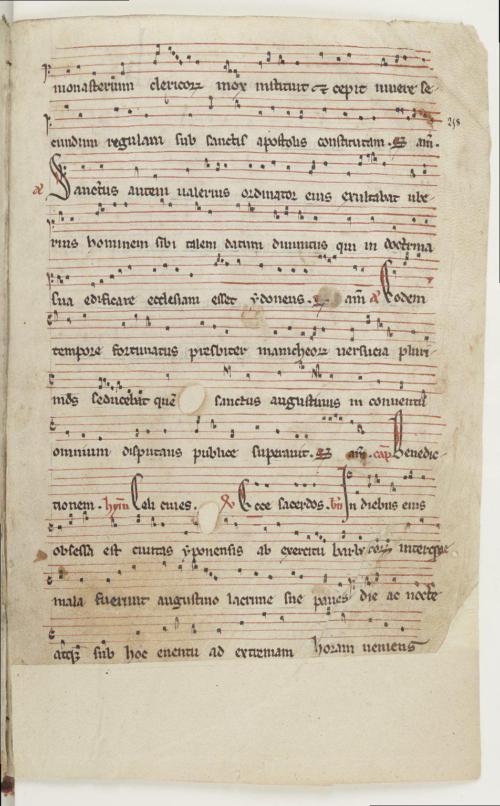 monasterium clericorꝝ mox instituit ⁊ cepit uiuere se-
258
cundum regulam sub sanctis apostolis constitutam. ps am̄.
a Sanctus autem ualerius ordinator eius exultabat ube-
rius hominem sibi talem datum diuinitus qui in doctrina
sua edificare ecclesiam esset ydoneus. am̄ a Eodem
tempore fortunatus presbiter manicheorꝝ uersucia pluri-
mos seducebat quē sanctus augustinus in conuentu
omnium disputans publice superauit. ps am̄. cap̄ Benedic-
tionem. hym̄ Celi ciues. ℣ Ecce sacerdos. bn̄ In diebus eius
obsessa est ciuitas yponensis ab exercitu barbarorꝝ interque
mala fuerunt augustino lacrime sue panes die ac nocte
atqꝫ sub hoc euentu ad extremam horam ueniens